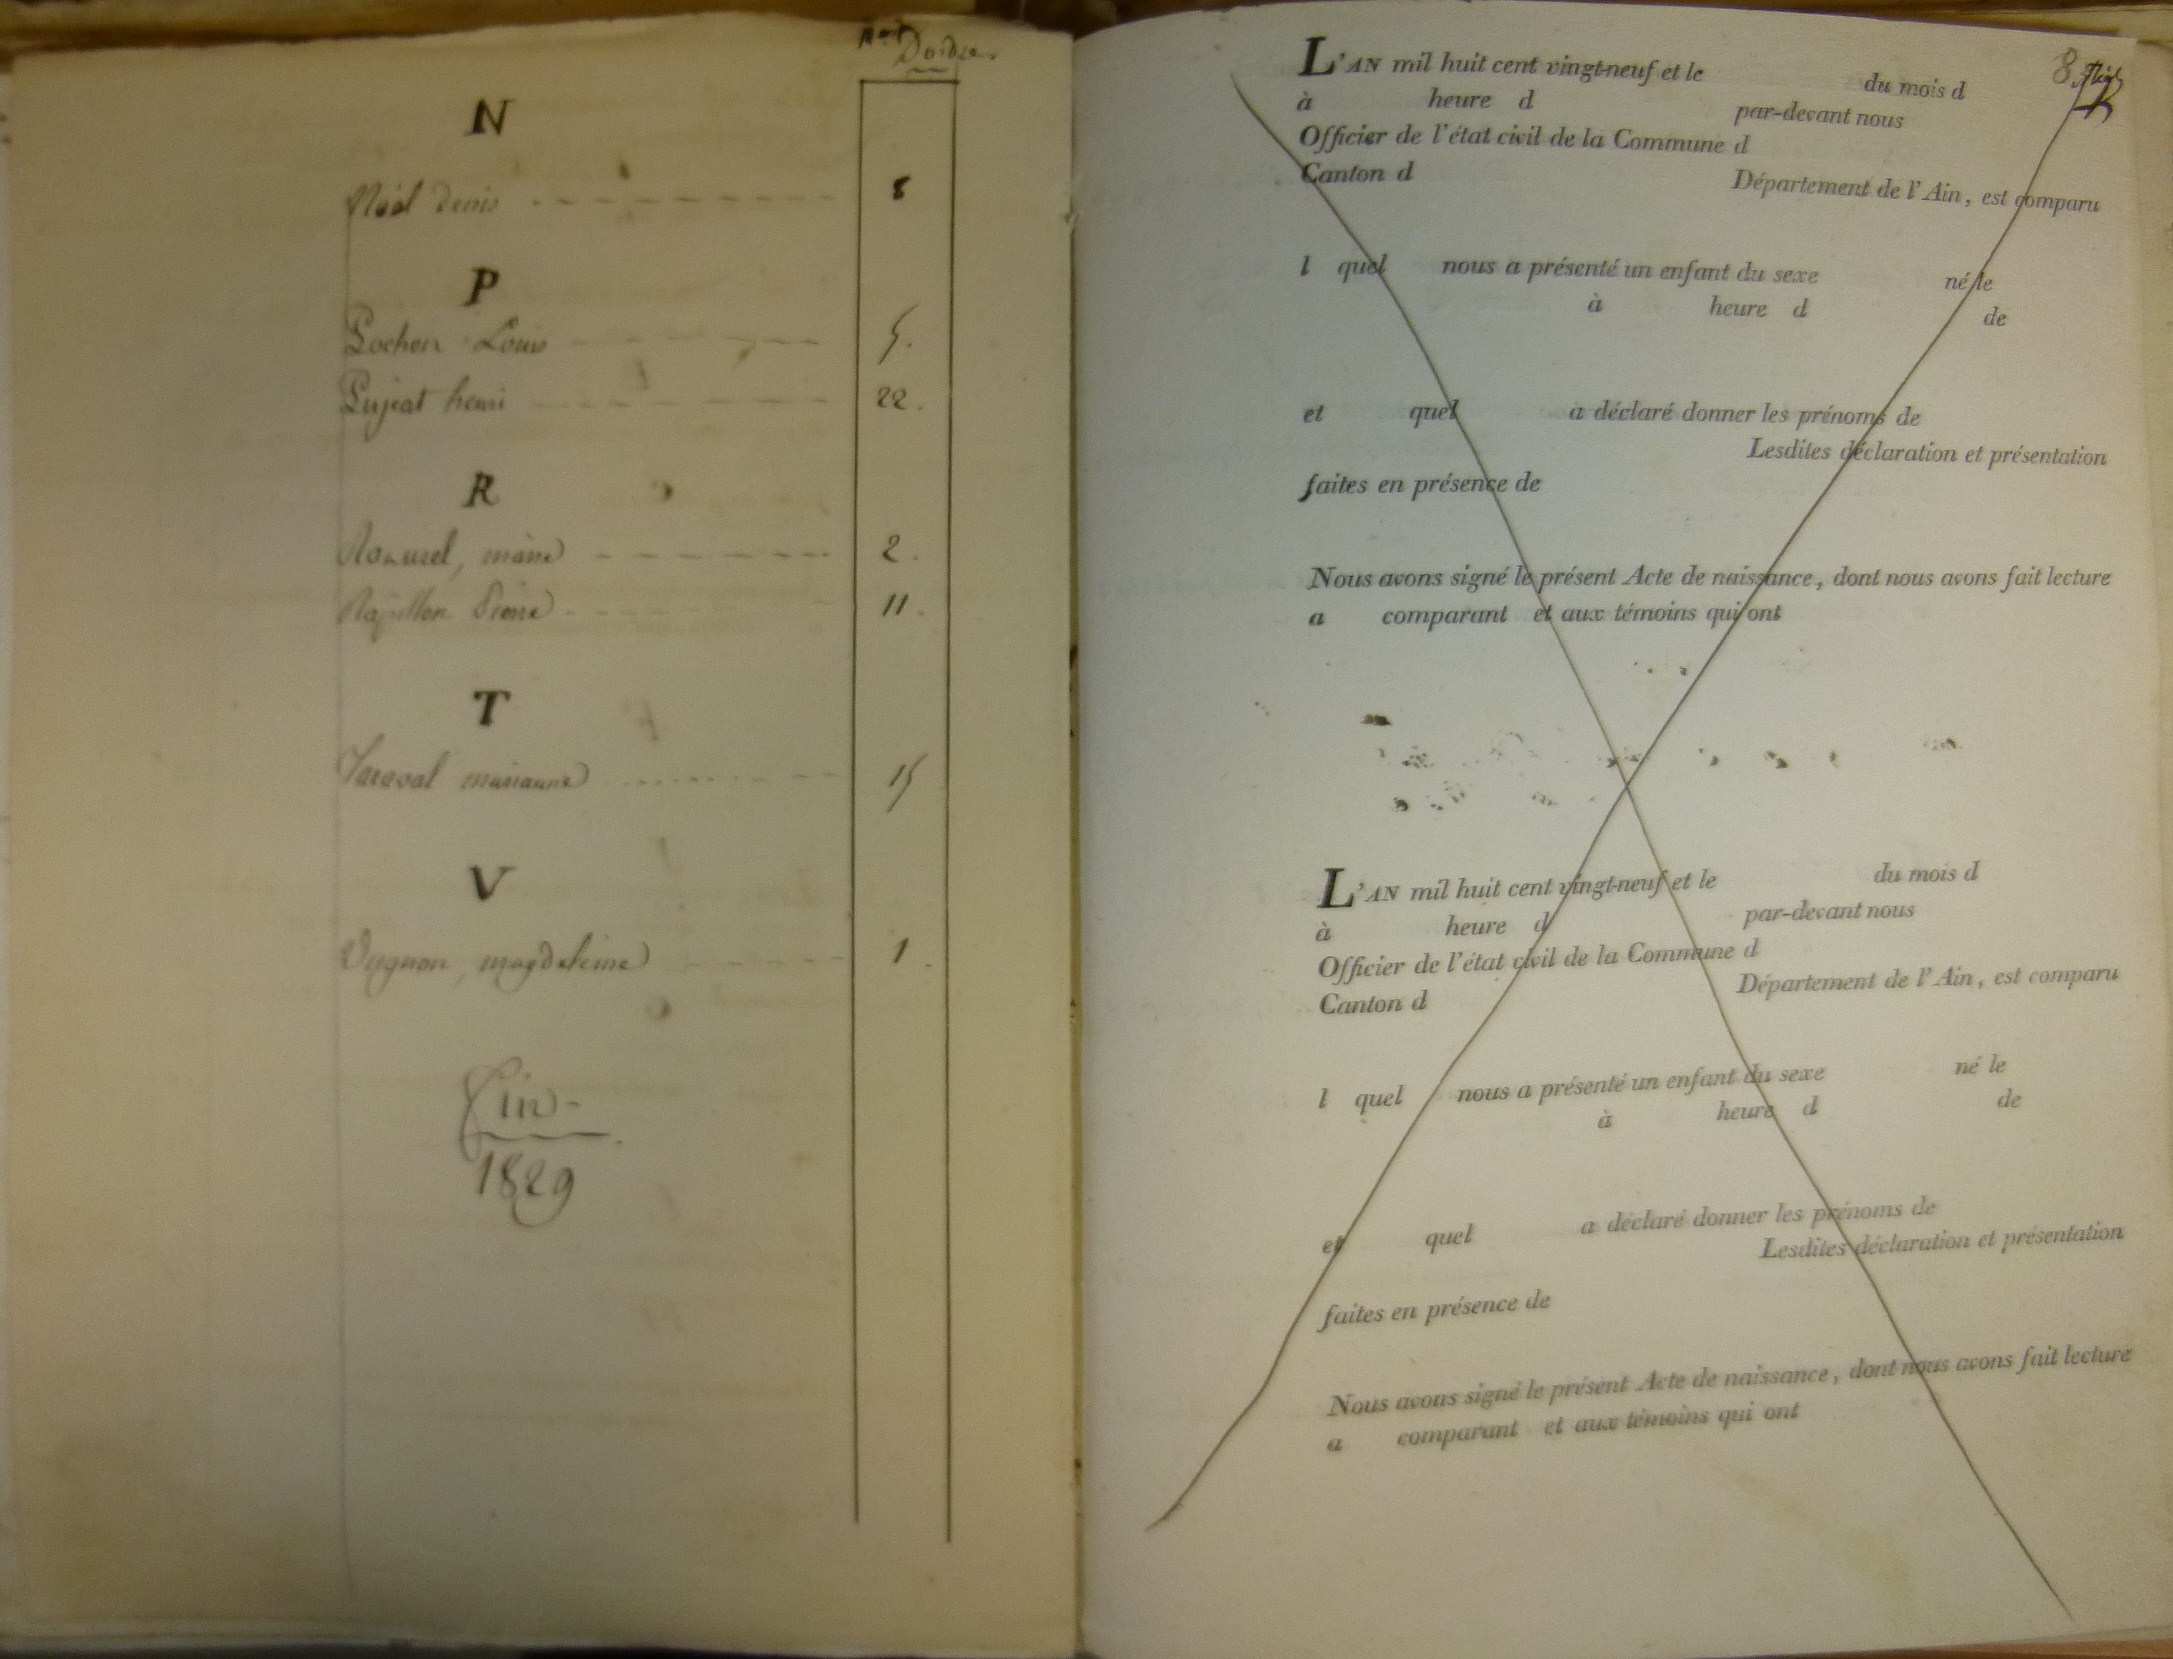 Nos D'ordre.
N
Noël Denis 8
P
Pochon Louis 5.
Pujeat henri 22.
R
marie 2.
Rapillon Pierre 11.
T
Taraval marianne 15
V
Vugnon, magdeleine 1.
Fin
1829
8.
L'AN mil huit cent vingt-neuf et le du mois d
à heure d par-devant nous
Officier de l'état civil de la Commune d
Canton d Département de l'Ain, est comparu
l quel nous a présenté un enfant du sexe né le
à heure d de
et quel a déclaré donner les prénoms de
Lesdites déclaration et présentation
faites en présence de
Nous avons signé le présent Acte de naissance, dont nous avons fait lecture
a comparant et aux témoins qui ont
L'AN mil huit cent vingt-neuf et le du mois d
à heure d par-devant nous
Officier de l'état civil de la Commune d
Canton d Département de l'Ain, est comparu
l quel nous a présenté un enfant du sexe né le
à heure d de
et quel a déclaré donner les prénoms de
Lesdites déclaration et présentation
faites en présence de
Nous avons signé le présent Acte de naissance, dont nous avons fait lecture
a comparant et aux témoins qui ont